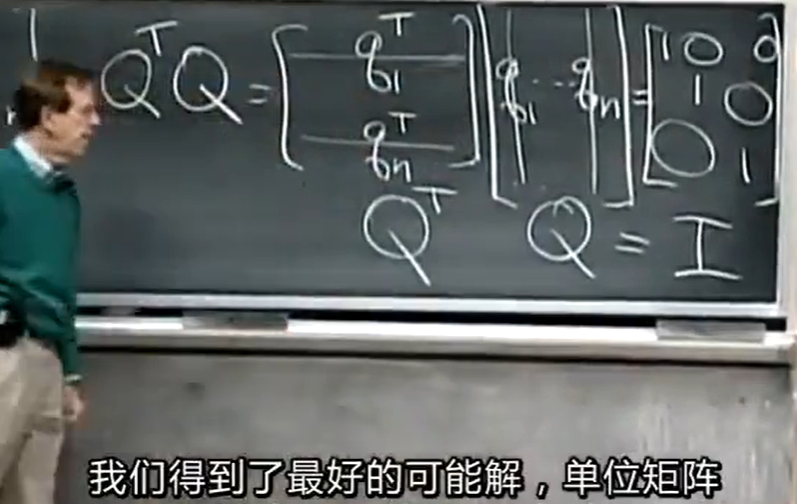 QᵀQ = [q₁ᵀ qₙᵀ] [q₁ ... qₙ] = [1 0 0 1 0 0 1]
Qᵀ Q = I
我们得到了最好的可能解，单位矩阵